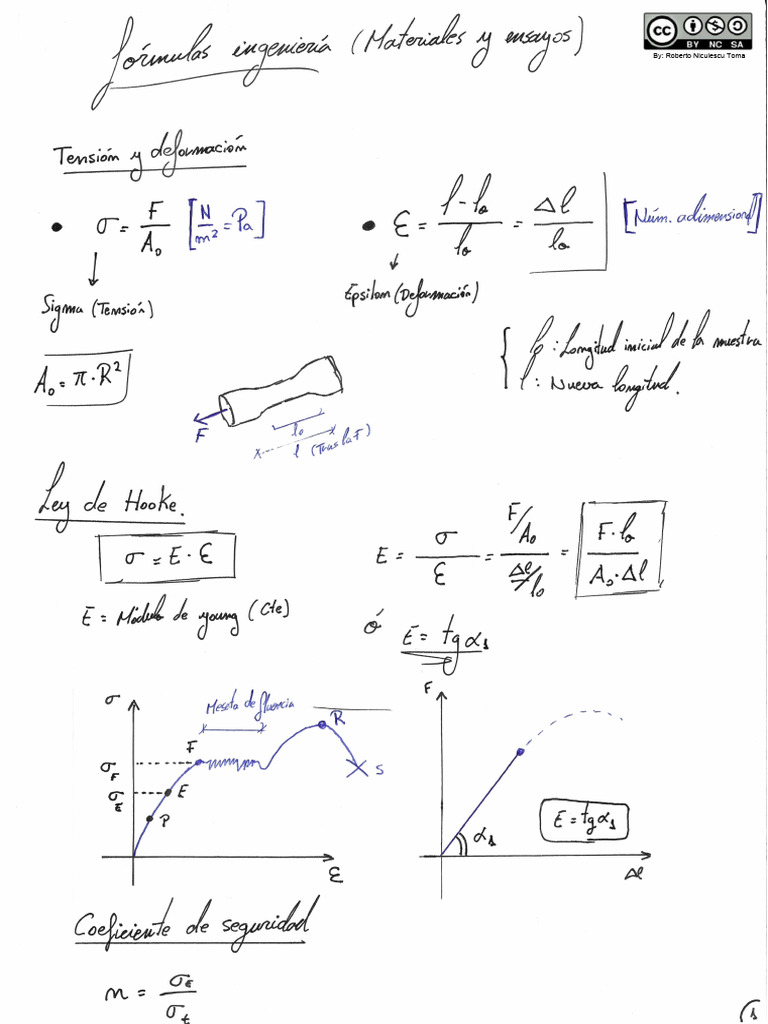 fórmulas ingeniería (Materiales y ensayos)
cc BY NC SA
By: Roberto Niculescu Toma
Tensión y deformación
• σ = F / A₀ [N / m² = Pa]
Sigma (Tensión)
• ε = l - l₀ / l₀ = Δl / l₀ [Núm. adimensional]
Epsilom (Deformación)
A₀ = π · R²
l₀ : Longitud inicial de la muestra
l : Nueva longitud.
F
l₀
l (Tras la F)
Ley de Hooke.
σ = E · ε
E = σ / ε = F/A₀ / Δl/l₀ = F · l₀ / A₀ · Δl
E = Módulo de young (Cte)
ó E = tg α₁
σ
Meseta de fluencia
F
R
S
σF
σE
E
P
ε
F
α₁
E = tg α₁
Δl
Coeficiente de seguridad
n = σE / σt
1